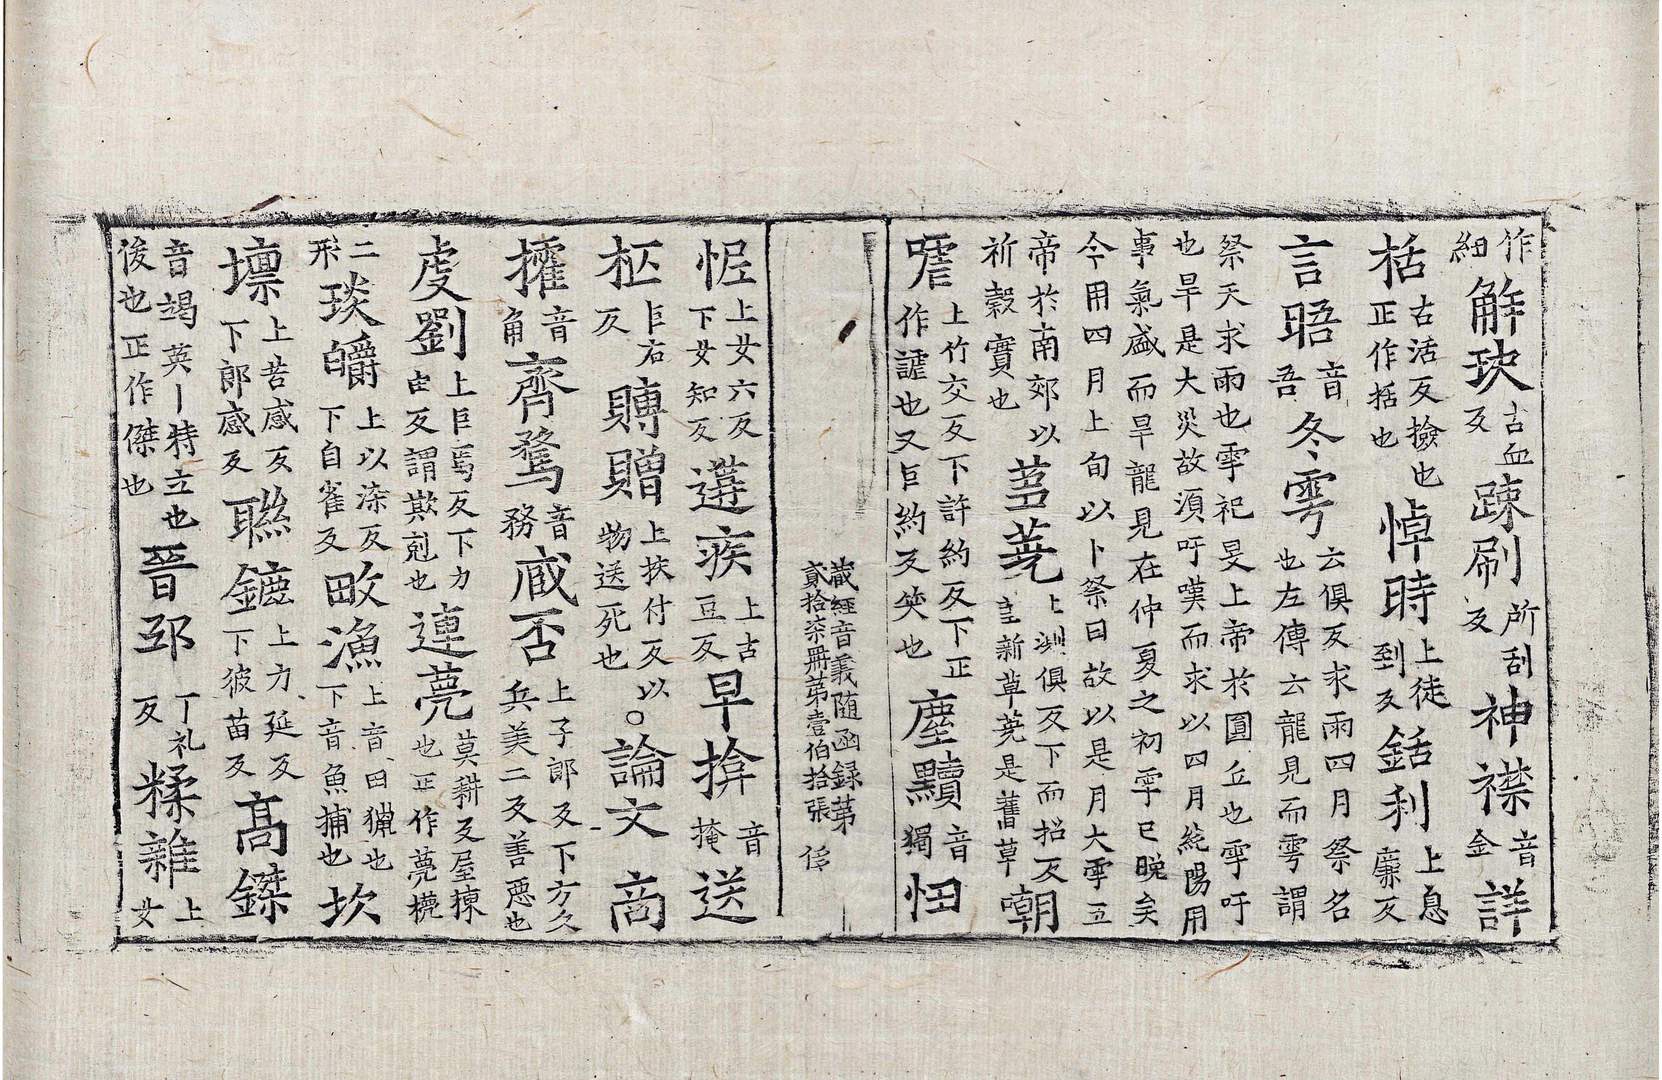 作細解玦古血反疎刷所刮反神襟音金詳
栝古活反撿也正作括也悼時上徒到反銛利上息廉反
言晤音吾冬雩云俱反求雨四月祭名也左傳云龍見而雩謂
祭天求雨也雩祀旻上帝於圓丘也雩吁也旱是大災故湏吁嘆而求以四月純陽用
事氣盛而旱龍見在仲夏之初雩已晚矣今用四月上旬以卜祭日故以是月大雩五
帝於南郊以祈穀實也蒭蕘上測俱反下而招反主新草蕘是舊草嘲
謔上竹交反下許約反下正作謔也又巨約反笑也塵黷音獨忸
藏經音義随函録苐貳拾柒冊苐壹伯拾張
怩上女六反下女知反遘疾上古豆反早揜音掩送
柩巨右反賻贈上扶付反以物送死也○論文商
搉音角齊騖音務臧否上子郎反下方久兵美二反善惡也
虔劉上巨焉反下力由反謂欺剋也連甍莫耕反屋棟也正作甍㼹
二形琰皭上以染反下自雀反畋漁上音田獵也下音魚捕也坎
壈上苦感反下郎感反聮鑣上力延反下彼苗反髙鏫
音竭英丨特立也俊也正作傑也晉邳丁礼反糅雜上女